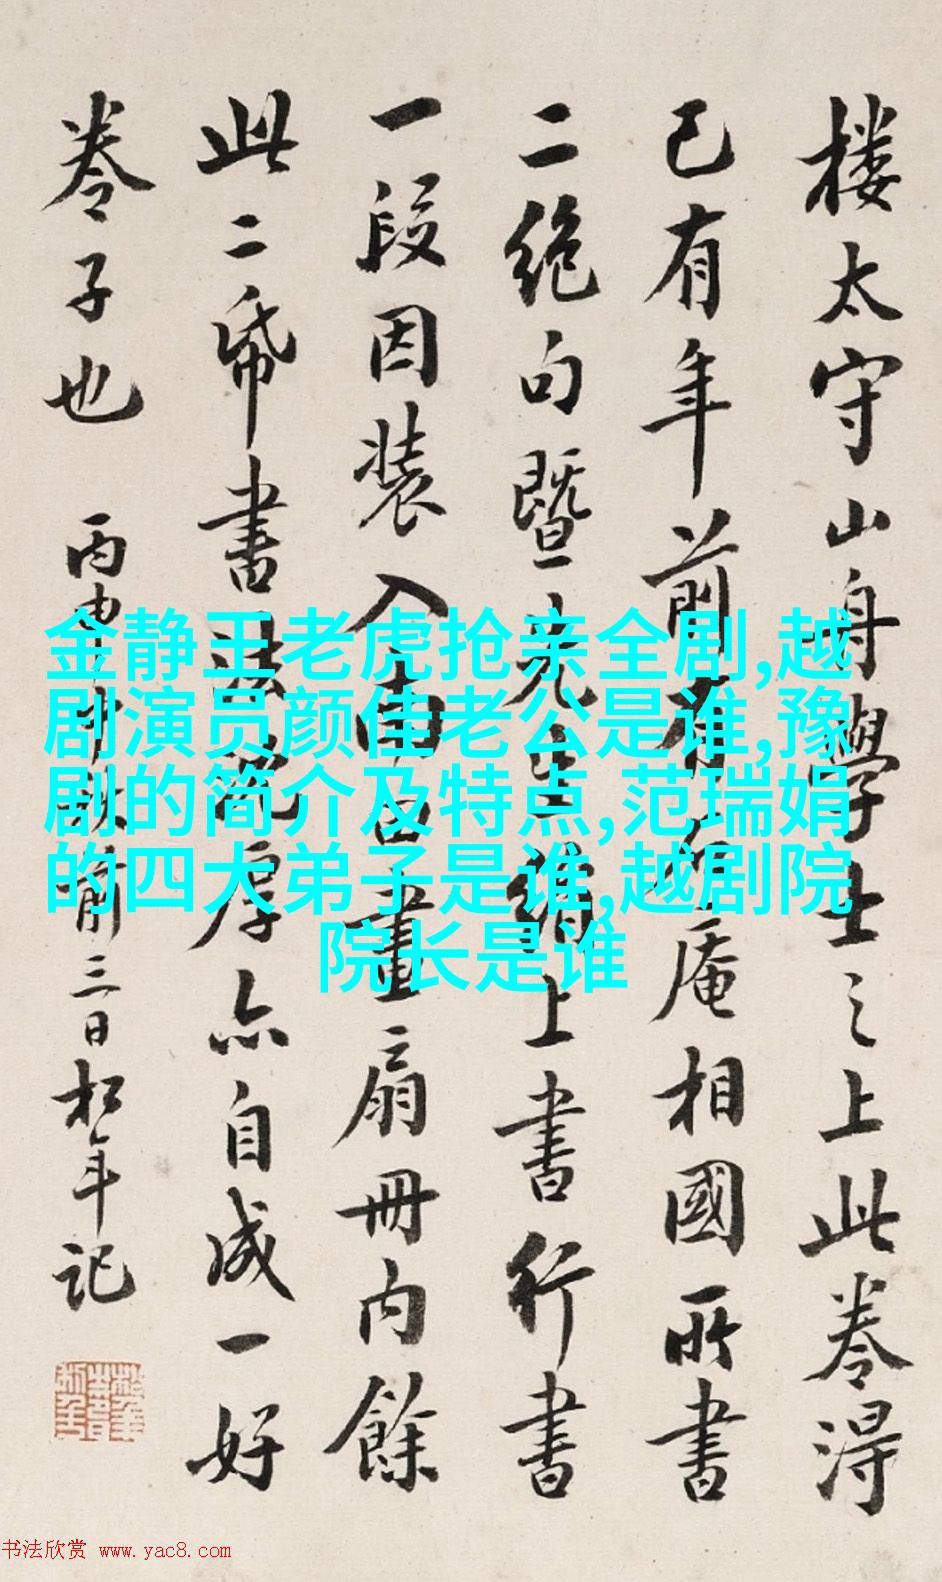 楼太守山舟學士之上此卷淂
已有年前有庵相國所書
二絕句暨先生上書行書
一段因装入畫扇冊内餘
此二帋書法厚亦自成一好
卷子也 丙申秋前三日松年记
金静王老虎抢亲全剧,越
剧演员颜佳老公是谁,豫
剧的简介及特点,范瑞娟
的四大弟子是谁,越剧院
院长是谁
书法欣赏 www.yac8.com